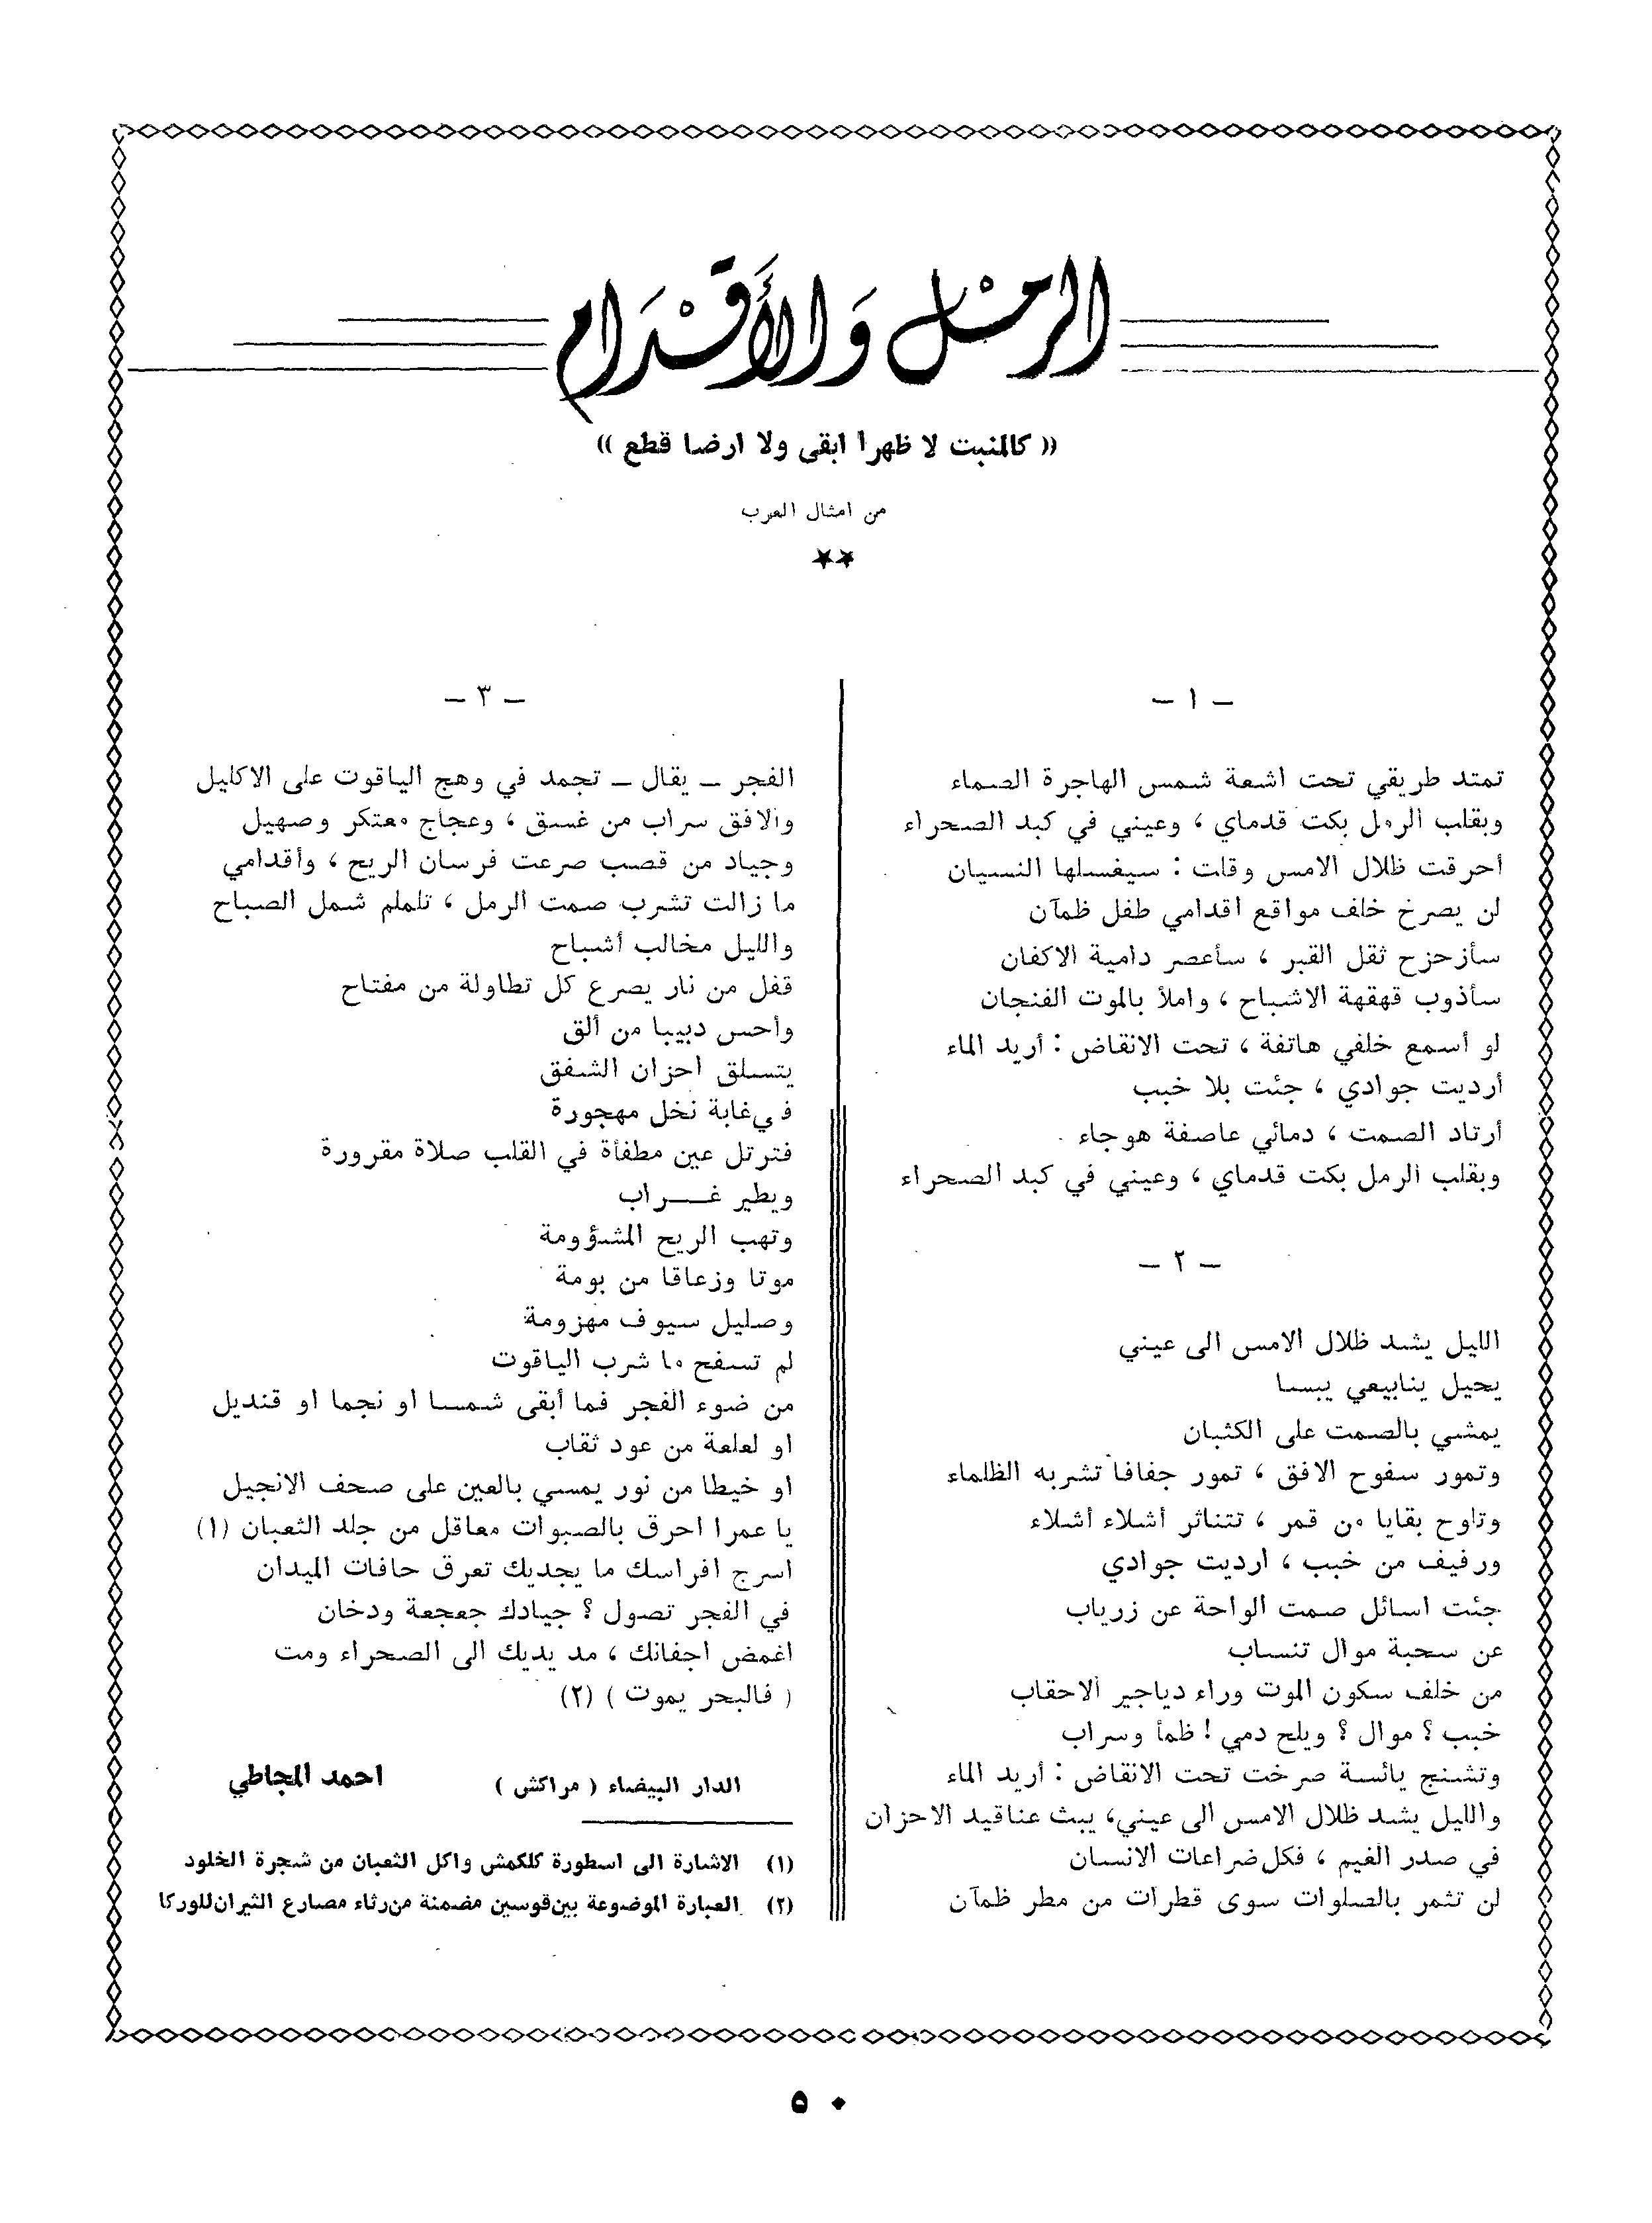 الرمل وَالأَقدَام
(( كالمنبت لا ظهرا ابقى ولا ارضا قطع ))
من امثال العرب
**
- ١ -
تمتد طريقي تحت اشعة شمس الهاجرة الصماء
وبقلب الرمل بكت قدماي ، وعيني في كبد الصحراء
أحرقت ظلال الامس وقلت : سيغسلها النسيان
لن يصرخ خلف مواقع اقدامي طفل ظمآن
سأزحزح ثقل القبر ، سأعصر دامية الاكفان
سأذوب قهقهة الاشباح ، واملأ بالموت الفنجان
لو أسمع خلفي هاتفة ، تحت الانقاض : أريد الماء
أرديت جوادي ، جئت بلا خبب
أرتاد الصمت ، دمائي عاصفة هوجاء
وبقلب الرمل بكت قدماي ، وعيني في كبد الصحراء
- ٢ -
الليل يشد ظلال الامس الى عيني
يحيل ينابيعي يبسا
يمشي بالصمت على الكثبان
وتمور سفوح الافق ، تمور جفافا تشربه الظلماء
وتلوح بقايا من قمر ، تتناثر أشلاء أشلاء
ورفيف من خبب ، ارديت جوادي
جئت اسائل صمت الواحة عن زرياب
عن سحبة موال تنساب
من خلف سكون الموت وراء دياجير الاحقاب
خبب ؟ موال ؟ ويلح دمي ! ظمأ وسراب
وتشنج يائسة صرخت تحت الانقاض : أريد الماء
والليل يشد ظلال الامس الى عيني، يبث عناقيد الاحزان
في صدر الغيم ، فكل ضراعات الانسان
لن تثمر بالصلوات سوى قطرات من مطر ظمآن
- ٣ -
الفجر - يقال - تجمد في وهج الياقوت على الاكليل
والافق سراب من غسق ، وعجاج معتكر وصهيل
وجياد من قصب صرعت فرسان الريح ، وأقدامي
ما زالت تشرب صمت الرمل ، تلملم شمل الصباح
والليل مخالب أشباح
قفل من نار يصرع كل تطاولة من مفتاح
وأحس دبيبا من ألق
يتسلق احزان الشفق
في غابة نخل مهجورة
فترتل عين مطفأة في القلب صلاة مقرورة
ويطير غـــراب
وتهب الريح المشؤومة
موتا وزعاقا من بومة
وصليل سيوف مهزومة
لم تسفح ما شرب الياقوت
من ضوء الفجر فما أبقى شمسا او نجما او قنديل
او لعلعة من عود ثقاب
او خيطا من نور يمسي بالعين على صحف الانجيل
يا عمرا احرق بالصبوات معاقل من جلد الثعبان (١)
اسرج افراسك ما يجديك تعرق حافات الميدان
في الفجر تصول ؟ جيادك جعجعة ودخان
اغمض اجفانك ، مد يديك الى الصحراء ومت
( فالبحر يموت ) (٢)
الدار البيضاء ( مراكش ) احمد المجاطي
(١) الاشارة الى اسطورة كلكمش واكل الثعبان من شجرة الخلود
(٢) العبارة الموضوعة بين قوسين مضمنة من رثاء مصارع الثيران للوركا
٥٠